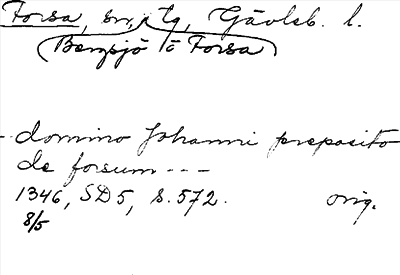 Forsa, sn, tg, Gävleb. l.
(Bergsjö o Forsa)
- domino Johanni preposito
de forsum - - -
1346, SD5, s. 572. orig.
8/5